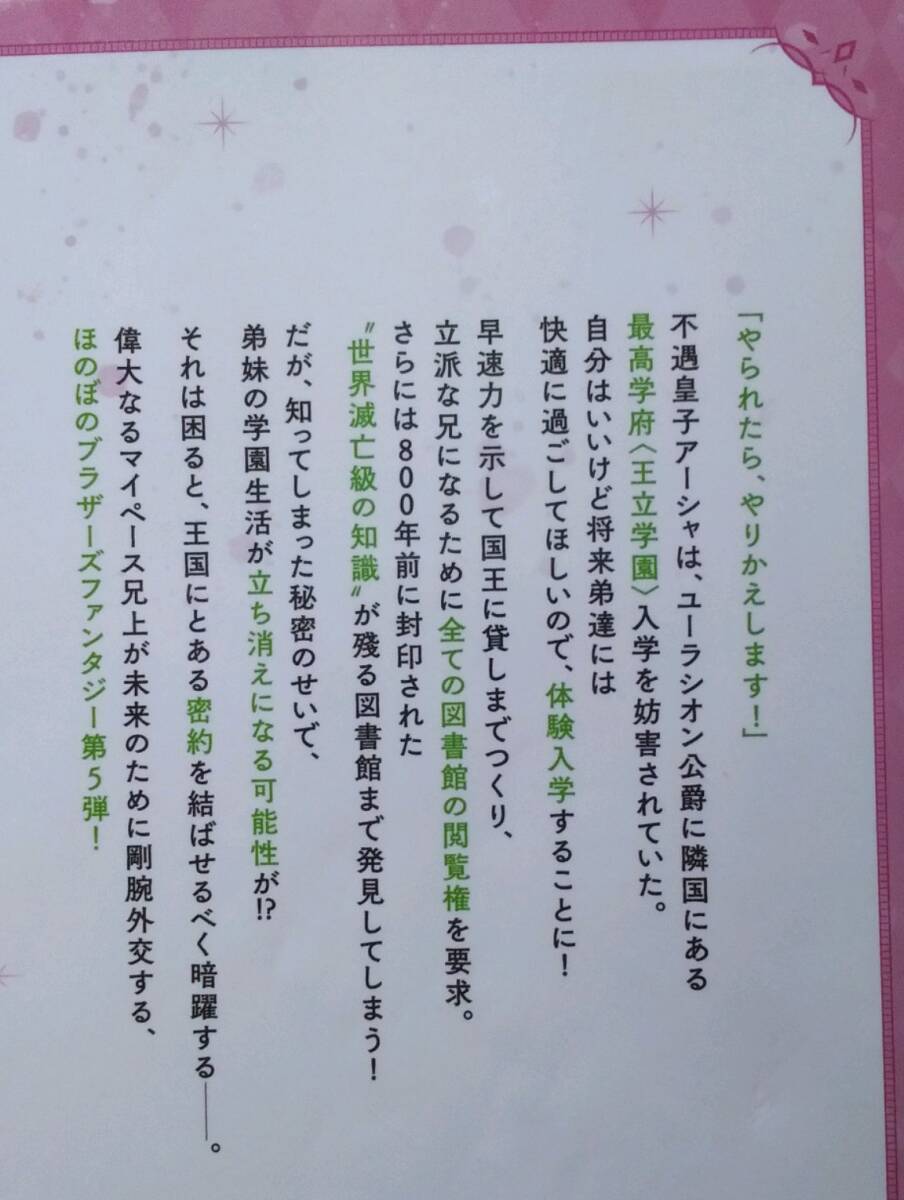 「やられたら、やりかえします!」
不遇皇子アーシャは、ユーラシオン公爵に隣国にある
最高学府〈王立学園〉入学を妨害されていた。
自分はいいけど将来弟達には
快適に過ごしてほしいので、体験入学することに!
早速力を示して国王に貸しまでつくり、
立派な兄になるために全ての図書館の閲覧権を要求。
さらには800年前に封印された
〝世界滅亡級の知識〟が残る図書館まで発見してしまう!
だが、知ってしまった秘密のせいで、
弟妹の学園生活が立ち消えになる可能性が!?
それは困ると、王国にとある密約を結ばせるべく暗躍する――。
偉大なるマイペース兄上が未来のために剛腕外交する、
ほのぼのブラザーズファンタジー第5弾!